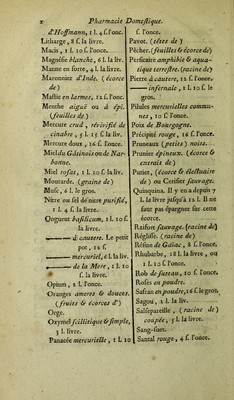 2 Pharmacie Domestique.
d'Hoffmann, 1 l. 4 f. l'onc.
Litharge, 8 f. la livre.
Macis, 1 l. 10 f. l'once.
Magnésie blanche, 6 l. la liv.
Manne en sorte, 4 l. la livre.
Maronnier d'Inde. (écorce
de)
Mastic en larmes, 12 f. l'onc.
Menthe aiguë ou à épi.
(feuilles de)
Mercure crud, révivifié de
cinabre, 5 l. 15 f. la liv.
Mercure doux, 16 f. l'once.
Miel du Gâtinois ou de Nar-
bonne.
Miel rosat, 1 l. 10 f. la liv.
Moutarde. (graine de)
Musc, 6 l. le gros.
Nitre ou sel de nitre purifié,
1 l. 4 f. la livre.
Onguent basilicum, 2 l. 10 f.
la livre.
—— à cautere. Le petit
pot, 12 f.
—— mercuriel, 6 l. la liv.
—— de la Mere, 1 l. 10
f. la livre.
Opium, 2 l. l'once.
Oranges ameres & douces.
(fruits & écorces d')
Orge.
Oxymel scillitique & simple,
3 l. livre.
Panacée mercurielle, 1 l. 10
f. l'once.
Pavot. (têtes de)
Pêcher. (feuilles & écorce de)
Persicaire amphibie & aqua-
tique terrestre. (racine de)
Pierre à cautere, 12 f. l'once.
—— infernale, 1 l. 10 f. le
gros.
Pilules mercurielles commu-
nes, 10 f. l'once.
Poix de Bourgogne.
Précipité rouge, 16 f. l'once.
Pruneaux (petits) noirs.
Prunier épineux. (écorce &
extrait de)
Putiet, (écorce & électuaire
de) ou Cerisier sauvage.
Quinquina. Il y en a depuis 7
l. la livre jusqu'à 12 l. Il ne
faut pas épargner sur cette
écorce.
Raifort sauvage. (racine de)
Réglisse. (racine de)
Résine de Gaïac, 8 f. l'once.
Rhubarbe, 18 l. la livre, ou
1 l. 10 f. l'once.
Rob de sureau, 10 f. l'once.
Roses en poudre.
Safran en poudre, 16 f. le gros.
Sagou, 2 l. la liv.
Salsepareille, (racine de)
coupée, 5 l. la livre.
Sang-sues.
Santal rouge, 4 f. l'once.